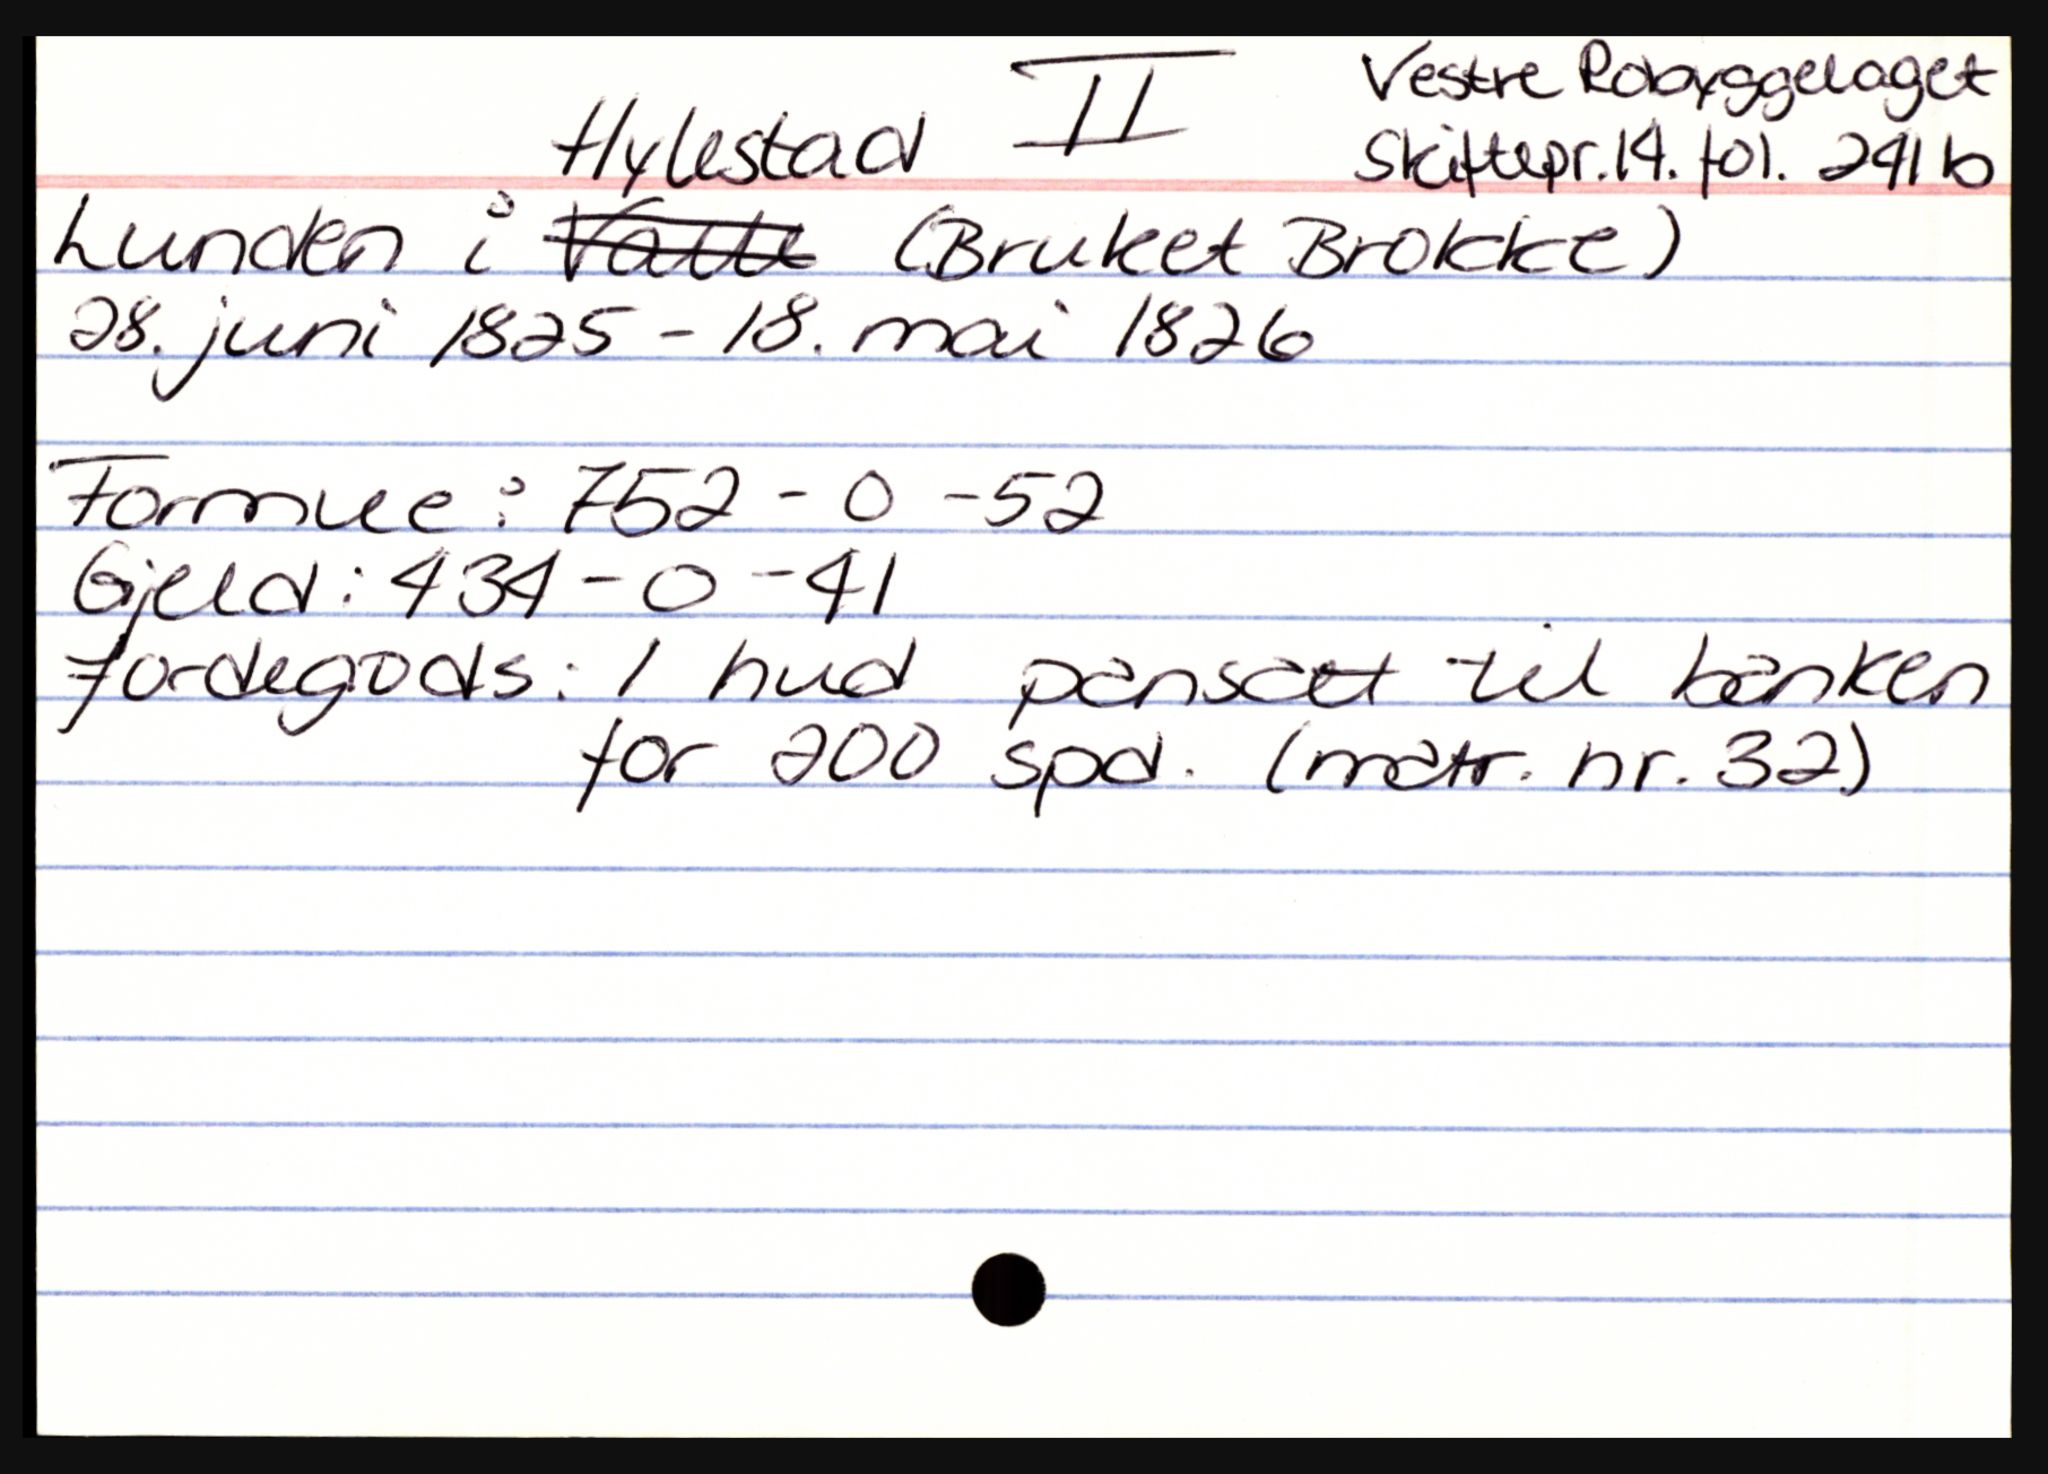 II
Vestre Robyggelaget
Skiftepr. 14. fol. 241 b
Hylestad
Lunden i Valle (Bruket Brokke)
28. juni 1825 - 18. mai 1826
Formue: 752 - 0 - 52
Gjeld: 434 - 0 - 41
Jordegods: 1 hud pansatt til banken
for 200 spd. (matr. nr. 32)